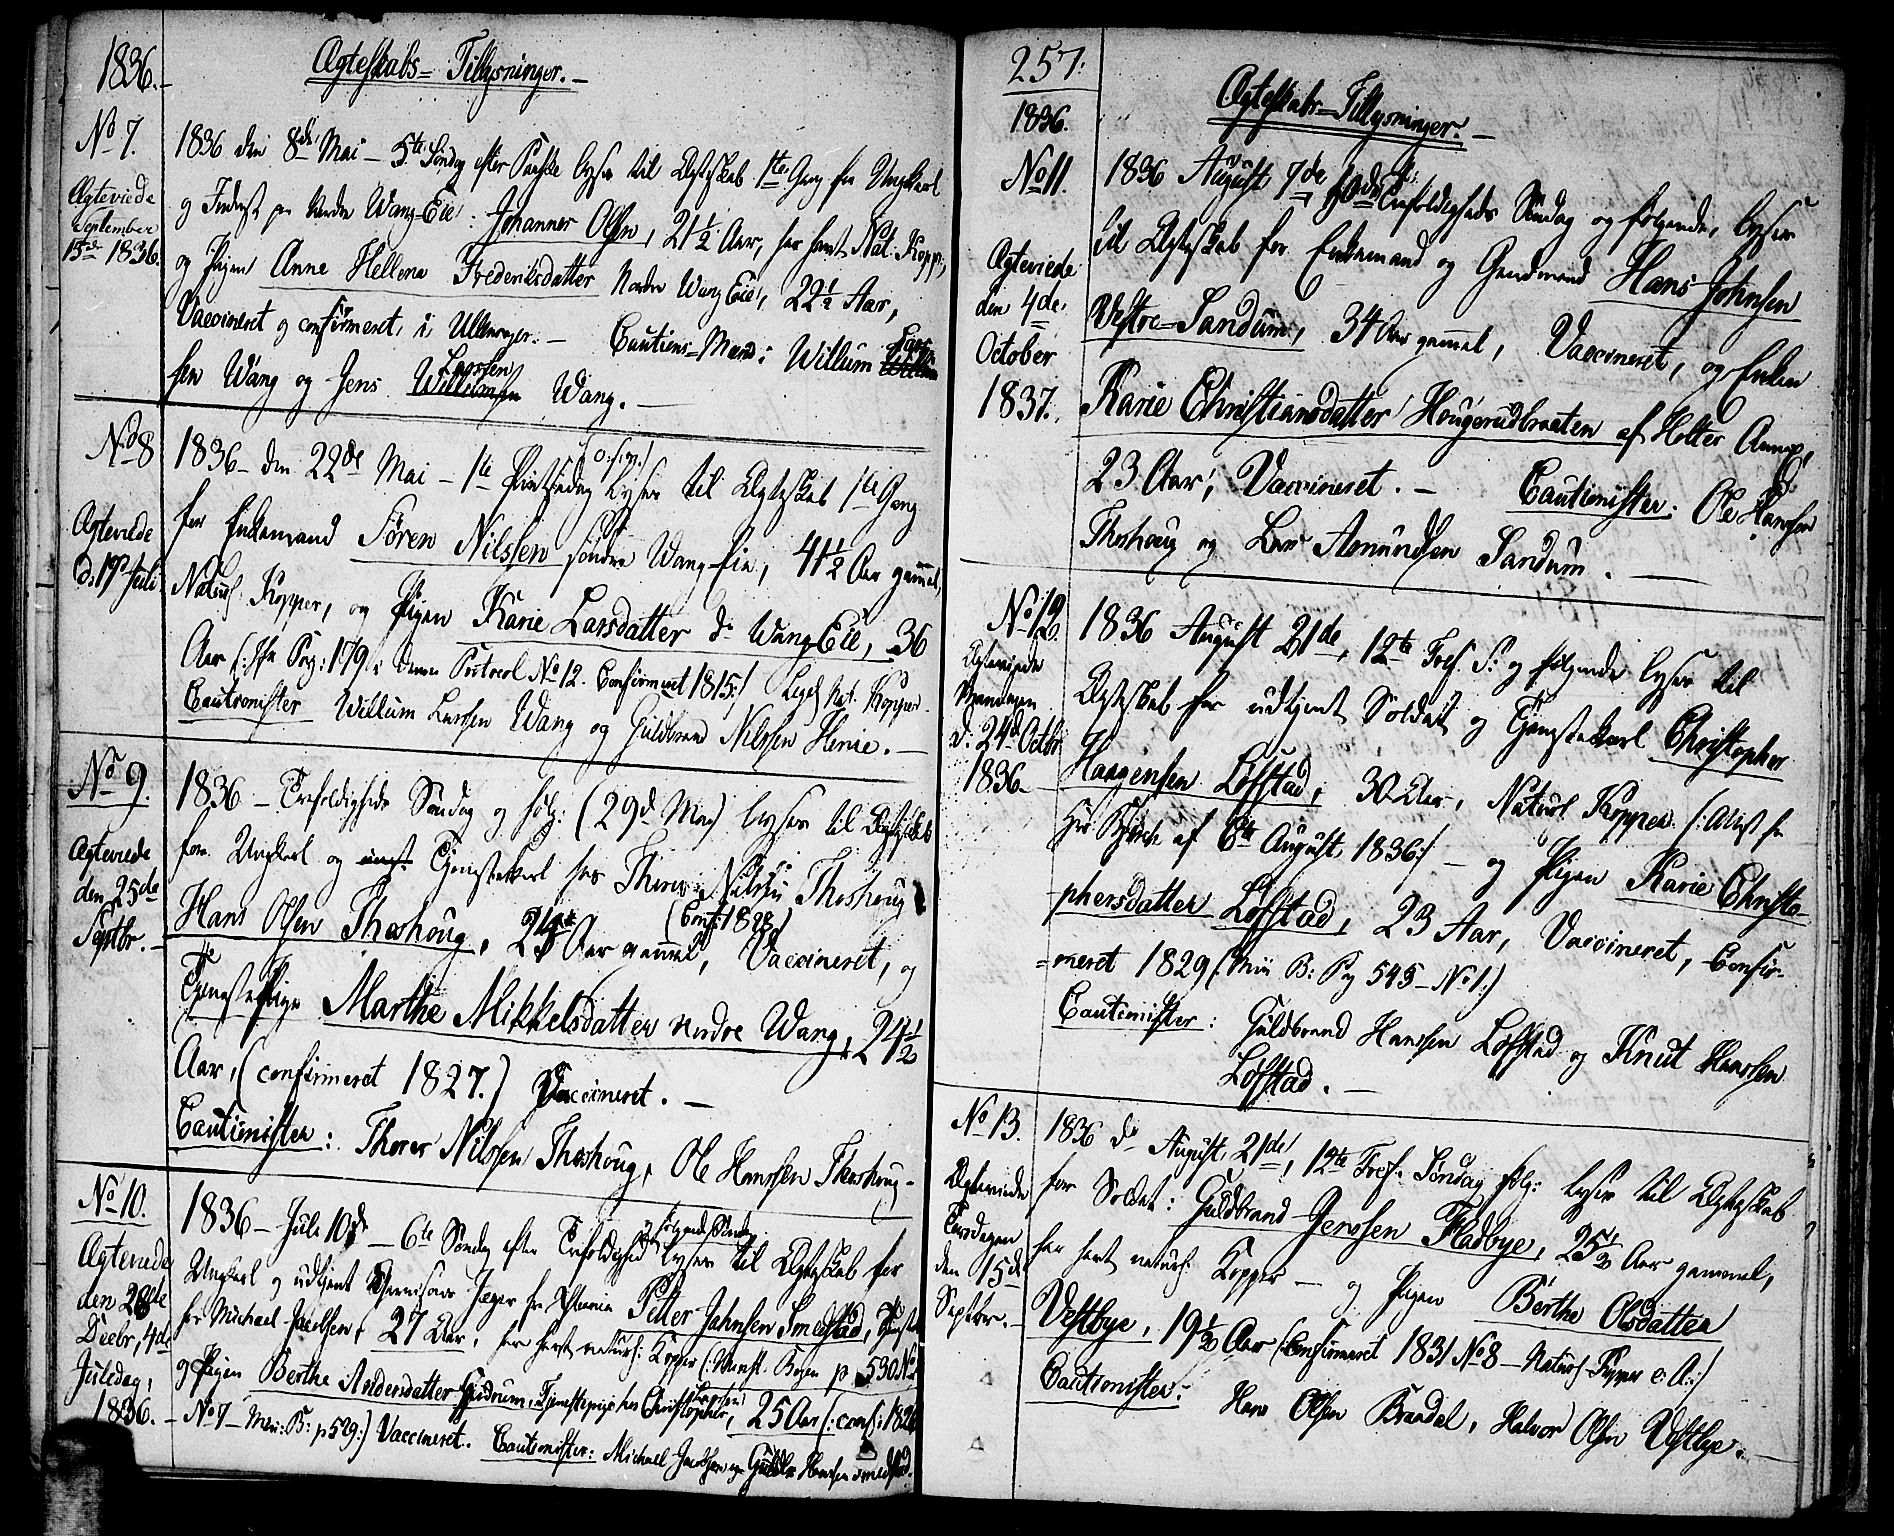 1836.
Ægteskabs-Tillysninger.
No 7.
Ægteviede
September
15de 1836.
1836 den 8de Mai - 5te Søndag efter Paaske lyses til Ægteskab 1ste Gang for Ungkarl
og Inderst paa Nordre Wang-Eie: Johannes Olsen, 21½ Aar, har havt Nat: Kopper,
og Pigen Anne Hellene Frederiksdatter Nordre Wang Eie, 22½ Aar,
Vaccineret og confirmeret i Ullensager. - Cautions-Mænd: Willum Lars
sen Wang og Jens Larssen Wang. -
No 8
Ægteviede
d. 19de Juli
1836 - den 22de Mai - 1ste Pintsedag lyses til Ægteskab 1ste Gang
for Enkemand Søren Nilssen søndre Wang-Eie, 41½ Aar gammel,
Naturl. Kopper, og Pigen Karie Larsdatter do Wang Eie, 36
Aar (: Pag: 179: No 12. Confirmeret 1815:) Nat. Kopper.
Cautionister Willum Larssen Wang og Guldbrand Nilssen Henie. -
No 9.
Ægteviede
den 25de
Septbr. -
1836 - Trefoldigheds Søndag og følg: (29de Mai) lyses til Ægteskab
for Ungkarl og Tjenestekarl hos Thorer Nilssen Thoshoug
Hans Olsen Thoshoug, Aar gammel, (Conf: 1828) Vaccineret, og
Tjenestepige Marthe Mikkelsdatter Nordre Wang, 24½
Aar, (confirmeret 1827.) Vaccineret. -
Cautionister: Thorer Nilssen Thoshoug, Ole Hanssen Thoshoug -
No 10.
Ægteviede
den 28de
Decbr, 4de
Juledag,
1836. -
1836 - Juli 10de - 6te Søndag efter Trefoldighed og følgende Søndag lyses til Ægteskab for
Ungkarl og udtjent Jæger Petter Jahnsen Smedstad, Tjenst
hos Michael Jacobsen, 27 Aar, har havt naturl: Kopper p 530 No
og Pigen Berthe Andersdatter Tjenestepige hos Christopher Larssen, 25 Aar (: conf: 1826
No 7 - Min: B: p 529:) Vaccineret. Cautionister: Michael Jacobsen og Guldbr Hanssen Smedstad.
257.
1836.
Ægteskabs-Tillysninger. -
No 11.
Ægteviede
den 4de
October
1837.
1836 August 7de, 10de Trefoldigheds Søndag og følgende, lyses
til Ægteskab for Enkemand og Gaardmand Hans Johnsen
Vestre-Sandum, 34 Aar gammel, Vaccineret, og Enken
Karie Christiansdatter Hougerudbraaten af Holter Annex,
23 Aar, Vaccineret. - Cautionister: Ole Hanssen
Thoshoug og Lars Amundsen Sandum. -
No 12.
Ægteviede
Mandagen
d. 24de Octbr
1836 -
1836 August 21de, 12te Tref. S: og følgende lyses til
Ægteskab for udtjent Soldat og Tjenestekarl Christopher
Haagensen Løfstad, 30 Aar, Naturl Kopper (: Attest fra
af 6te August 1836:) - og Pigen Karie Christo-
phersdatter Løfstad, 23 Aar, Vaccineret, Confir-
=meret 1829 (Min B: Pag 545 - No 1:)
Cautionister: Guldbrand Hanssen Løfstad og Knut Hanssen
Løfstad. -
No 13.
Ægteviede
Torsdagen
den 15de
Septbr. -
1836 do August 21de, 12te Tref. Søndag følg: lyses til Ægteskab
for Soldat: Guldbrand Jenssen Fladbye, 25½ Aar gammel,
har havt naturl: Kopper - og Pigen Berthe Olsdatter
Vestbye, 19½ Aar (Confirmeret 1831 No 8 - Naturl Kopper :)
Cautionister: Hans Olsen Brandal, Halvor Olsen Vestbye. -